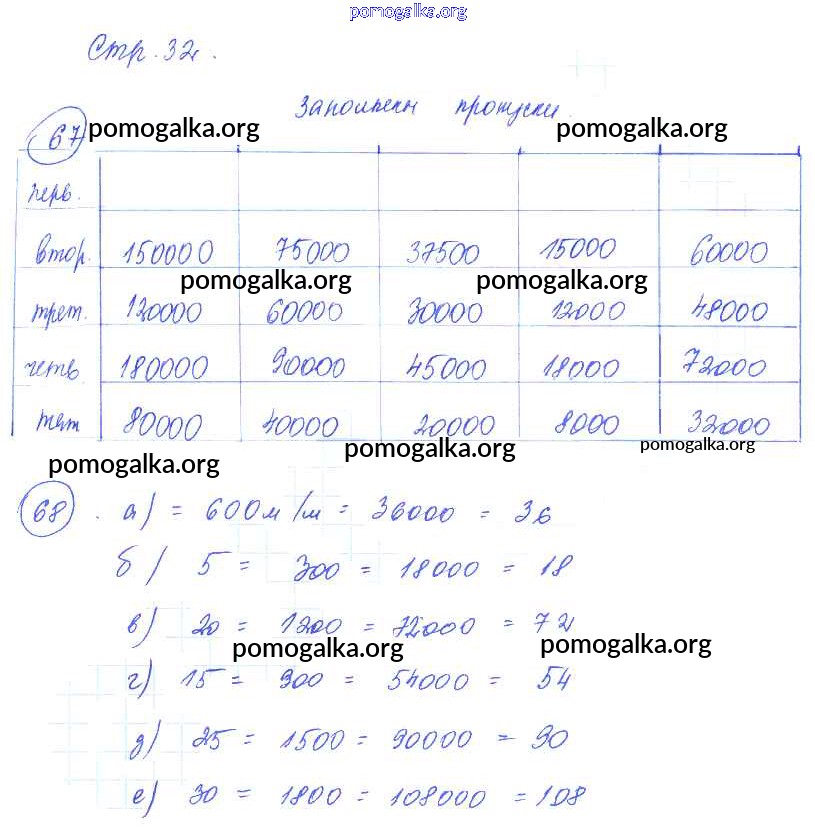 pomogalka.org
Стр. 32.
Заполняем пропуски.
67 pomogalka.org pomogalka.org
перв.
втор. 150000 75000 37500 15000 60000
pomogalka.org pomogalka.org
трет. 120000 60000 30000 12000 48000
четв. 180000 90000 45000 18000 72000
пят 80000 40000 20000 8000 32000
pomogalka.org pomogalka.org pomogalka.org
68. а) = 600м/м = 36000 = 36
б) 5 = 300 = 18000 = 18
в) 20 = 1200 = 72000 = 72
pomogalka.org pomogalka.org
г) 15 = 900 = 54000 = 54
д) 25 = 1500 = 90000 = 90
е) 30 = 1800 = 108000 = 108